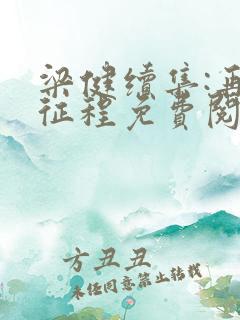 梁健续集:再
征程免费阅
方丑丑
未经同意禁止转载